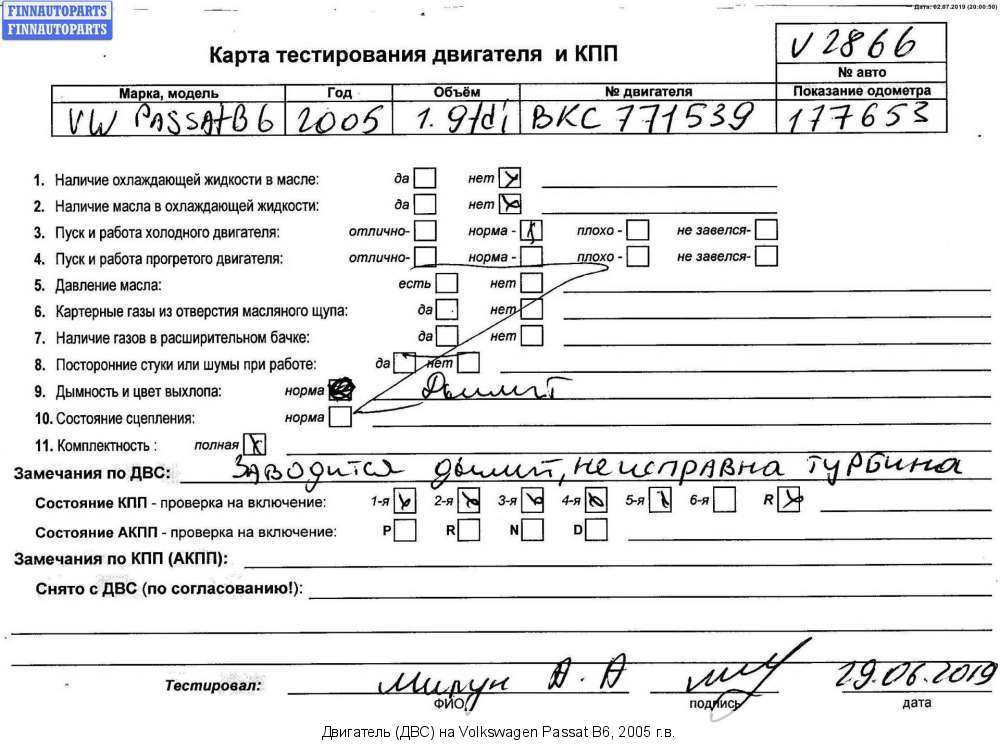 FINNAUTOPARTS
FINNAUTOPARTS
Дата: 02.07.2019 (20:00:50)
Карта тестирования двигателя и КПП
V 2866
№ авто
Марка, модель Год Объём № двигателя Показание одометра
VW PASSAT B6 2005 1.9 tdi BKC 771539 177653
1. Наличие охлаждающей жидкости в масле: да нет
2. Наличие масла в охлаждающей жидкости: да нет
3. Пуск и работа холодного двигателя: отлично- норма - плохо - не завелся-
4. Пуск и работа прогретого двигателя: отлично- норма - плохо - не завелся-
5. Давление масла: есть нет
6. Картерные газы из отверстия масляного щупа: да нет
7. Наличие газов в расширительном бачке: да нет
8. Посторонние стуки или шумы при работе: да нет
9. Дымность и цвет выхлопа: норма Дымит
10. Состояние сцепления: норма
11. Комплектность : полная
Замечания по ДВС: Заводится дымит, неисправна турбина
Состояние КПП - проверка на включение: 1-я 2-я 3-я 4-я 5-я 6-я R
Состояние АКПП - проверка на включение: P R N D
Замечания по КПП (АКПП):
Снято с ДВС (по согласованию!):
Тестировал: А. А 29.06.2019
ФИО подпись дата
Двигатель (ДВС) на Volkswagen Passat B6, 2005 г.в.